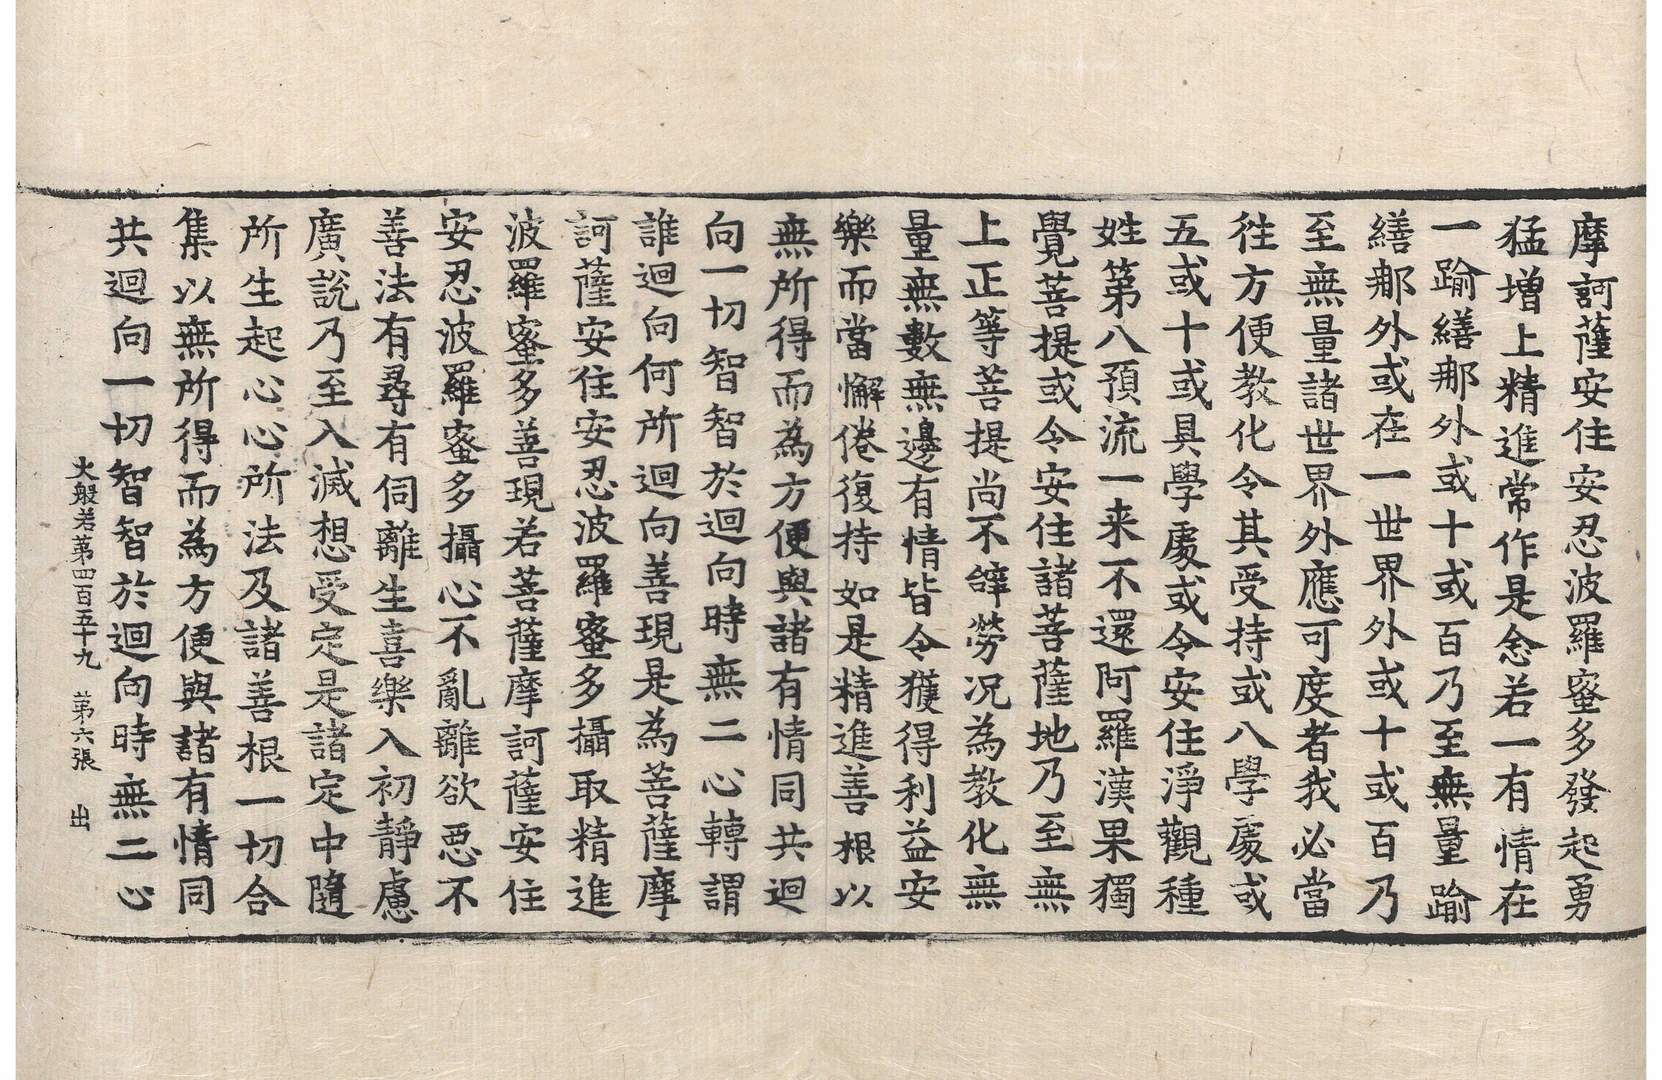 摩訶薩安住安忍波羅蜜多發起勇
猛增上精進常作是念若一有情在
一踰繕那外或十或百乃至無量踰
繕那外或在一世界外或十或百乃
至無量諸世界外應可度者我必當
往方便教化令其受持或八學處或
五或十或具學處或令安住淨觀種
姓第八預流一来不還阿羅漢果獨
覺菩提或令安住諸菩薩地乃至無
上正等菩提尚不辝勞况為教化無
量無數無邊有情皆令獲得利益安
樂而當懈倦復持如是精進善根以
無所得而為方便與諸有情同共迴
向一切智智於迴向時無二心轉謂
誰迴向何所迴向善現是為菩薩摩
訶薩安住安忍波羅蜜多攝取精進
波羅蜜多善現若菩薩摩訶薩安住
安忍波羅蜜多攝心不亂離欲惡不
善法有尋有伺離生喜樂入初靜慮
廣說乃至入滅想受定是諸定中隨
所生起心心所法及諸善根一切合
集以無所得而為方便與諸有情同
共迴向一切智智於迴向時無二心
大般若第四百五十九 第六張 出